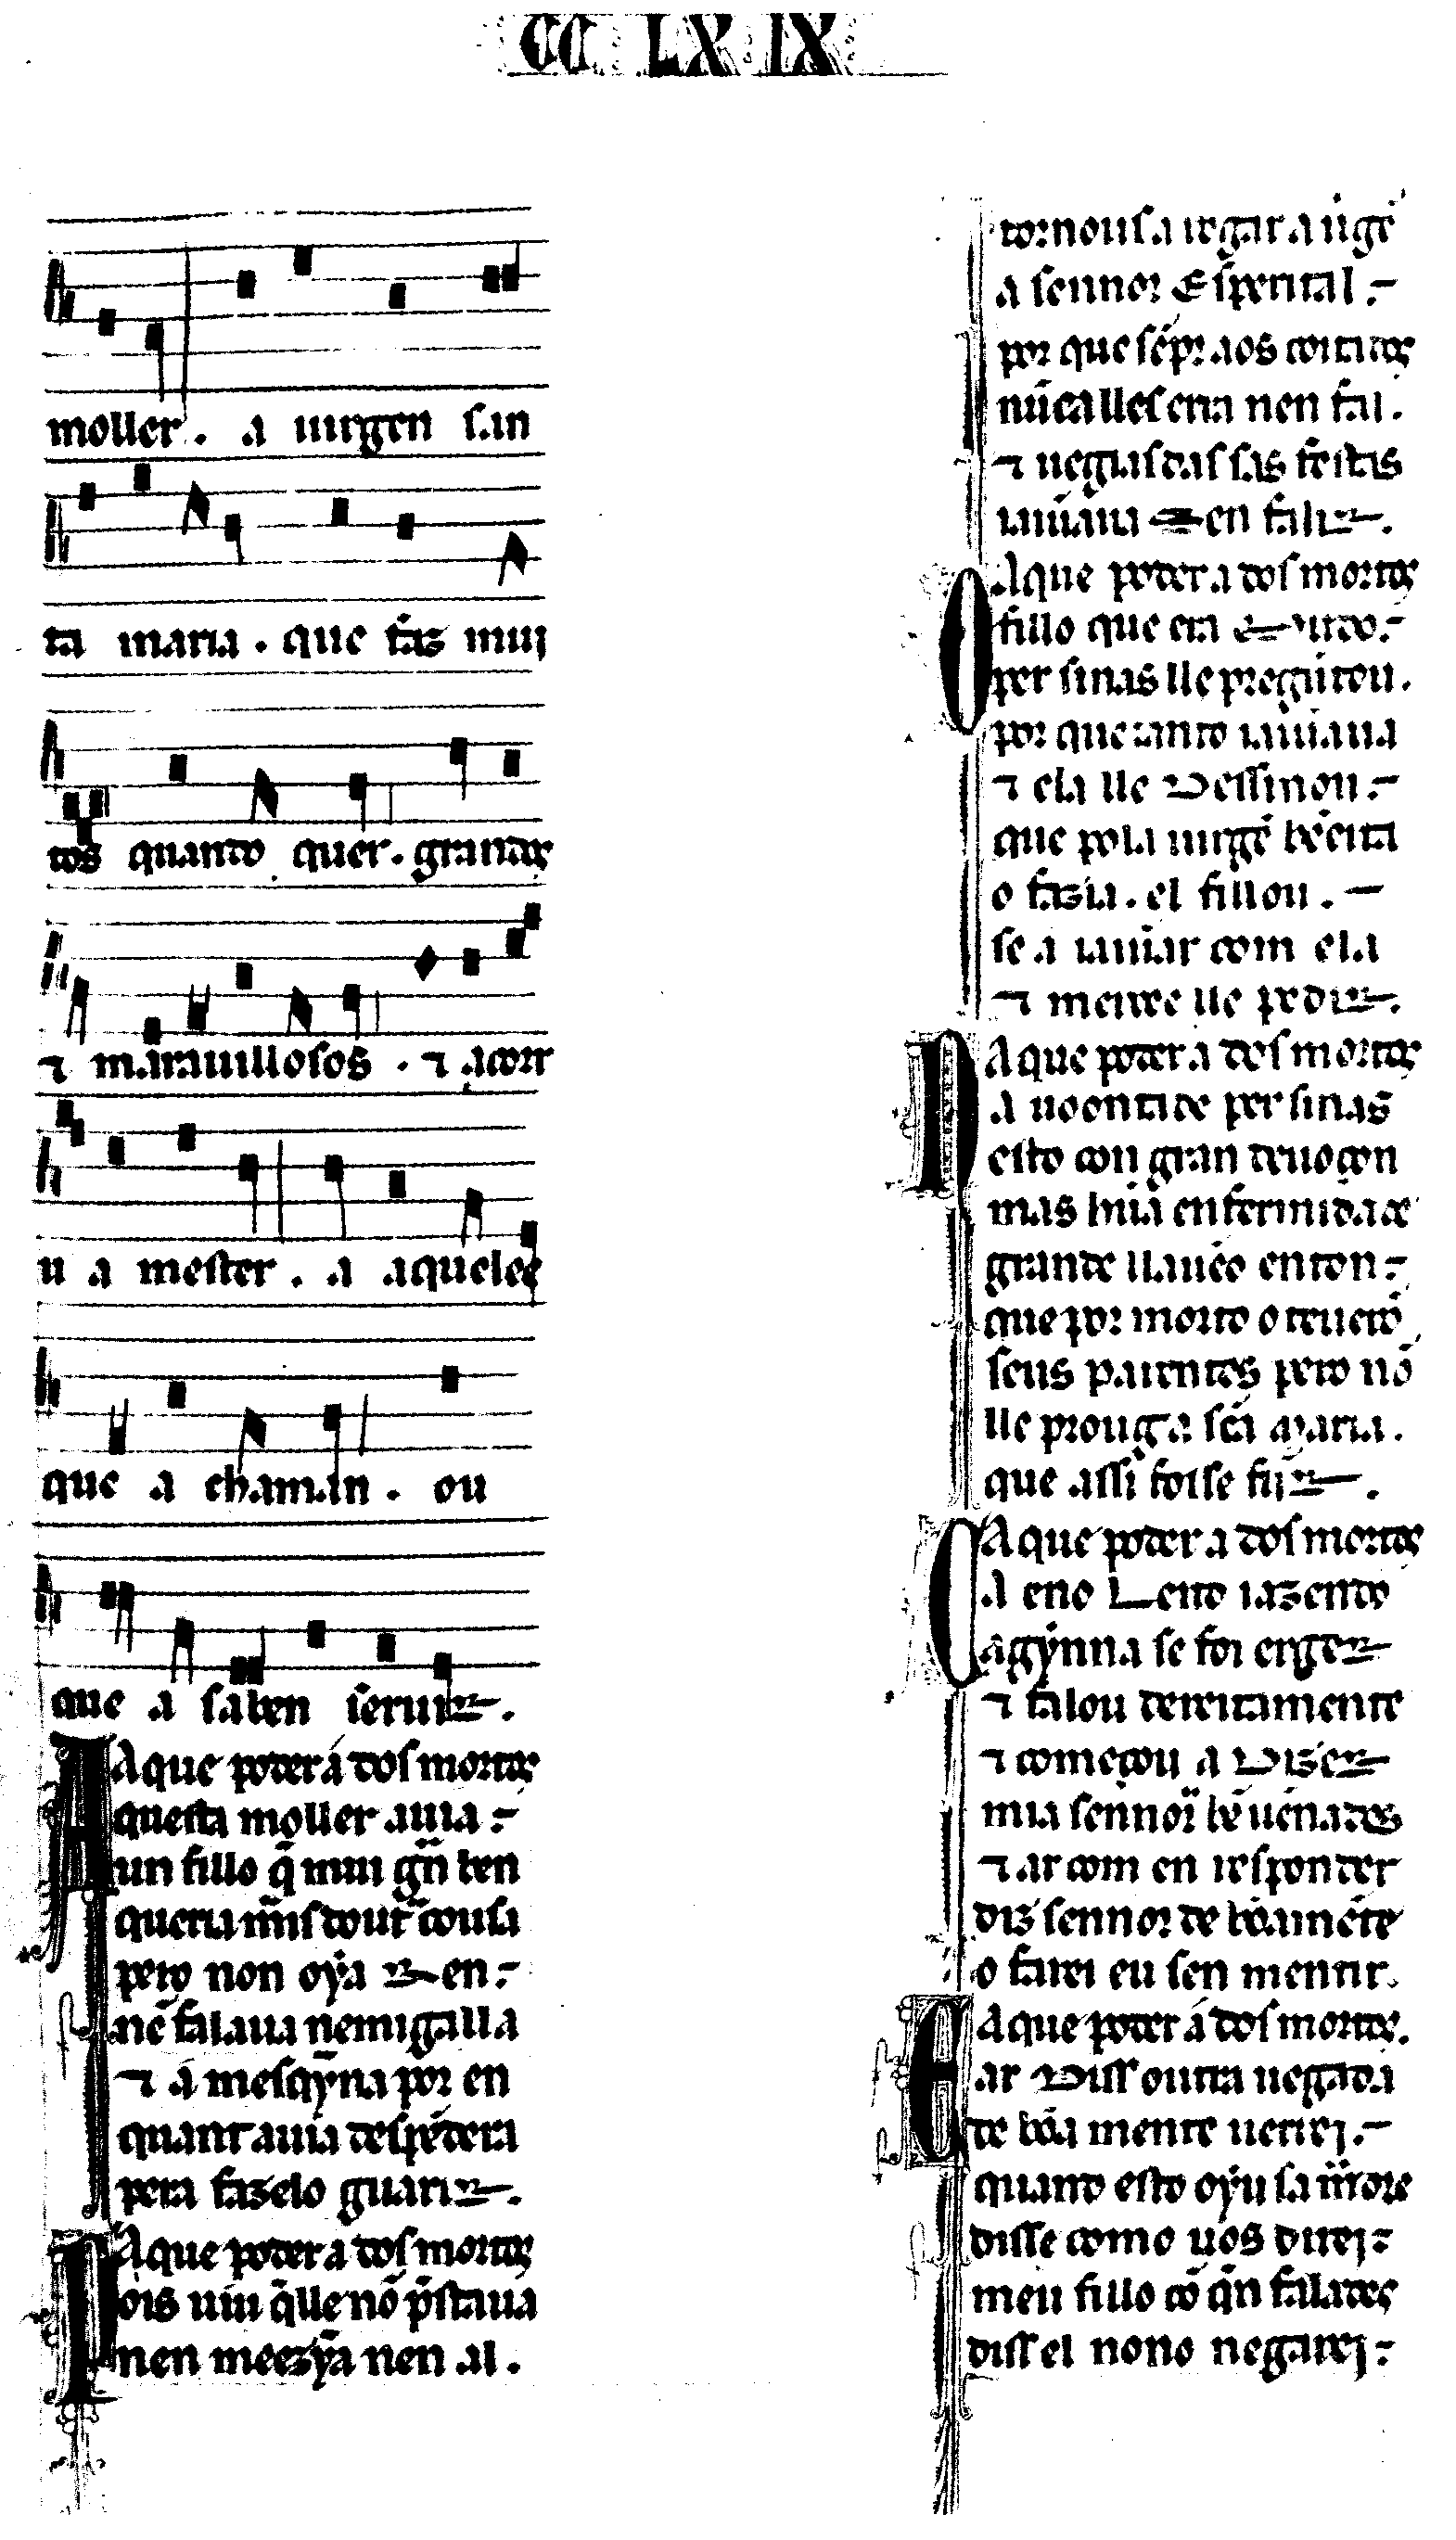 CC LX IX
moller. a uirgen san
ta maria. que faz mui
tos quanto quer. grandes
⁊ marauillosos. ⁊ acorr
u a mester. a aqueles
que a chaman. ou
que a saben seruir.
A que poder á dos mortos
Aquesta moller auia
un fillo q̄ mui gñ ben
queria mais doutr̃ cousa
pero non oýa ren
nẽ falaua nemigalla
⁊ a mesqỹna por en
quant auia despẽdera
pera fazelo guarir.
A que poder a dos mortos
Pois uiu q̄lle nõ p̃staua
nen meezỹa nen al.
tornous a rogar a uirgẽ
a sennor Esperital
por que sẽpr aos coitados
nũca lles erra nen fal.
⁊ uegias das sas festas
iaiũaua sen falir.
A que poder a dos mortos
O fillo que era mudo
per sinas lle pregũtou.
por que tanto iaiũaua
⁊ ela lle dessinou
que pola uirgẽ bẽeita
o fazia. el fillou.
se a iaiũar com ela
⁊ mente lle pedir.
A que poder a dos mortos
Na uoontade per sinas
esto con gran deuoçon
mas hũa enfermidade
grande llauẽo enton
que por morto o teuerõ
seus parentes pero nõ
lle prougue sc̃a maria.
que assi foisse fĩir.
A que poder a dos mortos
Ca eno leito iazendo
agỹnna se foi erger
⁊ falou dereitamente
⁊ começou a dizer
mia sennor bẽ uẽnades
⁊ ar com en responder
diz sennor de bõamẽte
o farei eu sen mentir.
A que poder á dos mortos.
E ar diss outra uegada
de bõa mente uerrei.
quando esto oýu sa madre
disse como uos direi
meu fillo cõ q̄n falades
diss el nono negarei